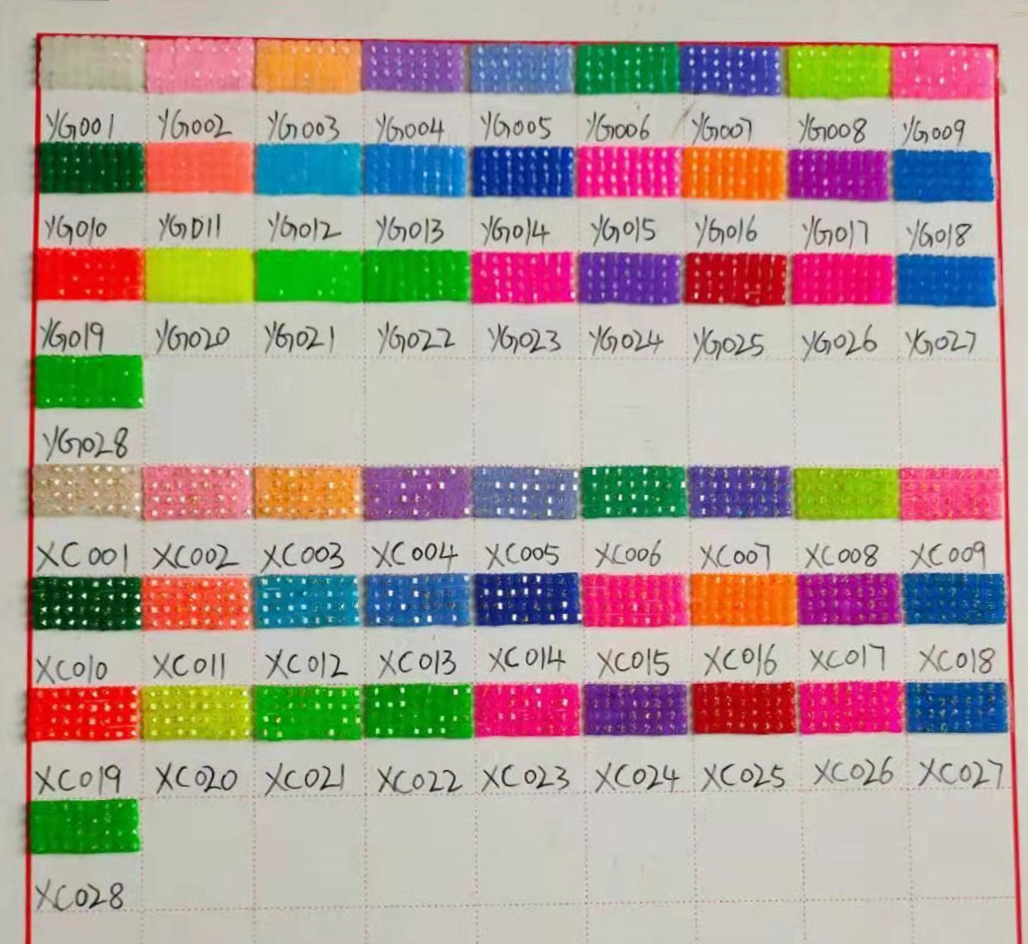 YG001 YG002 YG003 YG004 YG005 YG006 YG007 YG008 YG009
YG010 YG011 YG012 YG013 YG014 YG015 YG016 YG017 YG018
YG019 YG020 YG021 YG022 YG023 YG024 YG025 YG026 YG027
YG028
XC001 XC002 XC003 XC004 XC005 XC006 XC007 XC008 XC009
XC010 XC011 XC012 XC013 XC014 XC015 XC016 XC017 XC018
XC019 XC020 XC021 XC022 XC023 XC024 XC025 XC026 XC027
XC028